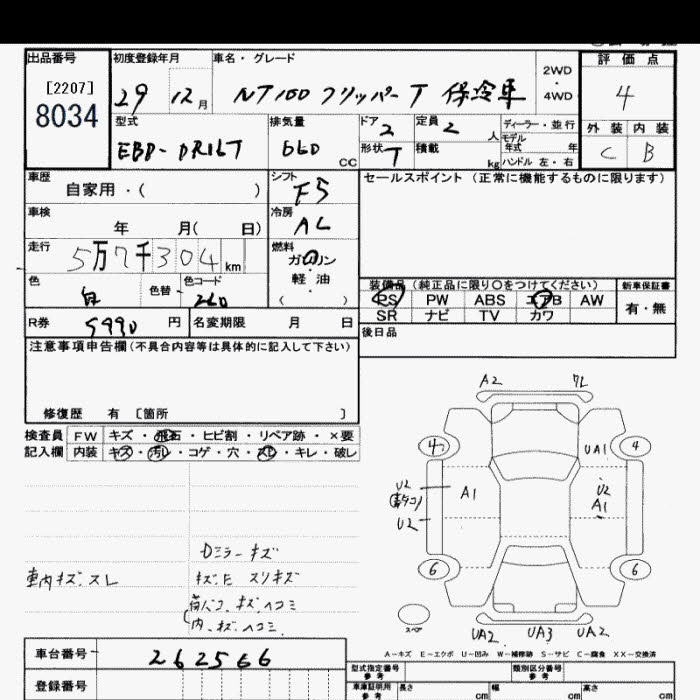 出品番号
[2207]
8034
初度登録年月
29 12 月
車名・グレード
NT100 クリッパーT 保冷車
2WD
4WD
評価点
4
外装 内装
C B
型式
EBD-DR16T
排気量
660 CC
ドア
2
形状
T
定員
2 人
積載
kg
ディーラー・並行
モデル
年式 年
ハンドル 左・右
車歴
自家用・( )
シフト
F5
セールスポイント (正常に機能するものに限ります)
車検
年 月( 日)
冷房
AC
走行
5万7千304 km
燃料
ガソリン
・
軽油
( )
色
白
色替
色コード
260
装備品 (純正品に限り○をつけてください)
PS PW ABS エアB AW
SR ナビ TV カワ
新車保証書
有・無
R券 5990 円
名変期限 月 日
後日品
注意事項申告欄(不具合内容等は具体的に記入して下さい)
修復歴 有 [箇所 ]
検査員
記入欄
FW キズ・飛石・ヒビ割・リペア跡・×要
内装 キズ・汚レ・コゲ・穴・スレ・キレ・破レ
車内キズ.スレ
Dミラーキズ
スリキズ
キズ.ヘコミ
内.キズ.ヘコミ.
A2
UA1
4
4
U2
U2
A1
U2
A1
6
6
スペア
UA2 UA3 UA2
A-キズ E-エクボ U-凹み W-補修跡 S-サビ C-腐食 XX-交換済
車台番号
262566
登録番号
型式指定番号
参考
類別区分番号
参考
車庫証明用
参考
長さ cm
幅 cm
高さ cm